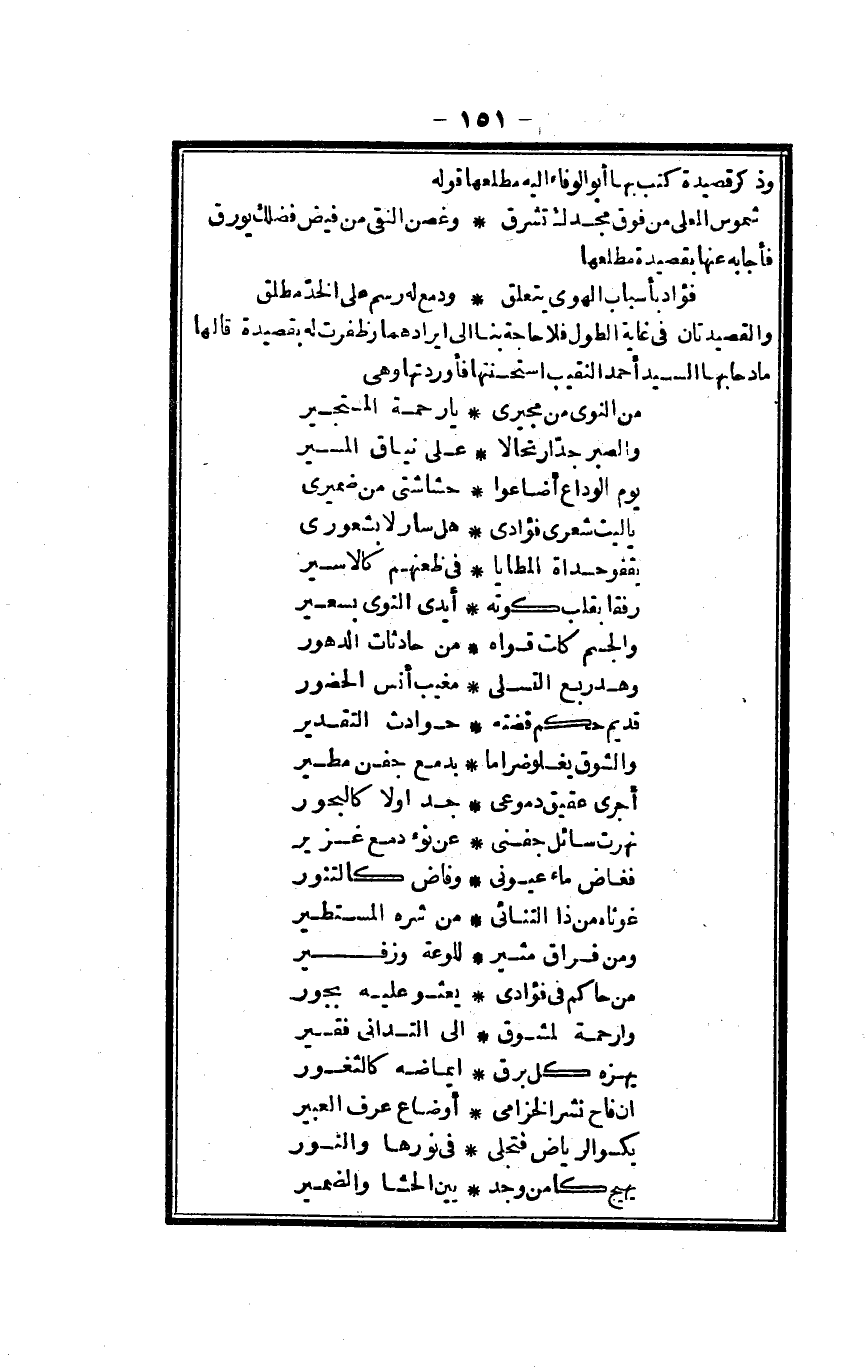 - ١٥١ -
وذكر قصيدة كتب بها أبو الوفاء اليه مطلعها قوله
شموس العلى من فوق مجدك تشرق * وغصن النقى من فيض فضلك يورق
فأجابه عنها بقصيدة مطلعها
فؤاد بأسباب الهوى يتعلق * ودمع له رسم على الخد مطلق
والقصيدتان فى غاية الطول فلا حاجة بنا الى ايرادهما وظفرت له بقصيدة قالها
مادحا بها السيد أحمد النقيب استحسنتها فأوردتها وهى
من النوى من مجيرى * يا رحمة المستجير
والصبر جد ارتحالا * على نياق المسير
يوم الوداع أضاعوا * حشاشتى من ضميرى
ياليت شعرى فؤادى * هل سار لا بشعورى
يقفو حداة المطايا * فى ظعنهم كالاسير
رفقا بقلب كوته * أيدى النوى بسعير
والجسم كلت قواه * من حادثات الدهور
وهد ربع التسلى * مغيب أنس الحضور
قديم حكم قضته * حوادث التقدير
والشوق يغلو ضراما * بدمع جفن مطير
أجرى عقيق دموعى * جداولا كالبحور
نهرت سائل جفنى * عن نوء دمع غزير
فغاض ماء عيونى * وفاض كالتنور
غوثاه من ذا التنائى * من شره المستطير
ومن فراق مثير * للوعة وزفير
من حاكم فى فؤادى * يعثو عليه بجور
وارحمة لمشوق * الى التدانى فقير
يهزه كل برق * ايماضه كالثغور
ان فاح نشر الخزامى * أوضاع عرف العبير
يكسو الرياض فتجلى * فى نورها والنور
يهيج كامن وجد * بين الحشا والضمير